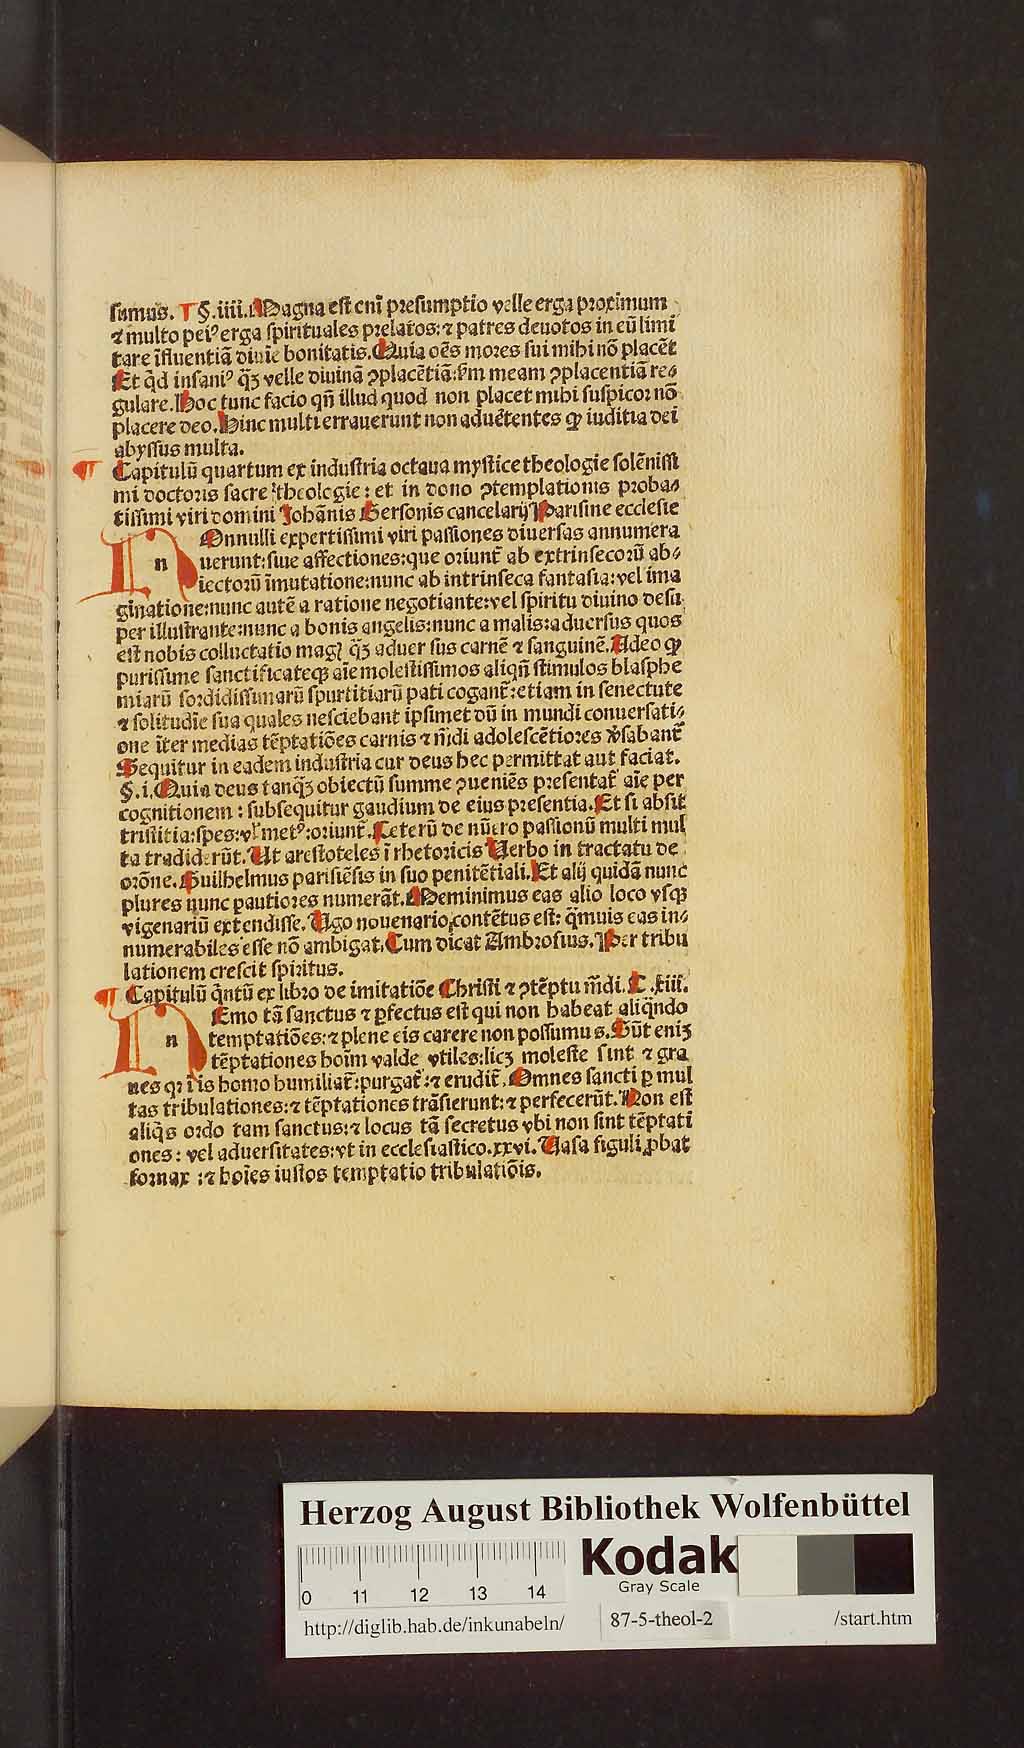 sumus. ¶ §.iiii. Magna est eni᷒ presumptio velle erga proximum
⁊ multo peiꝰ erga spirituales prelatos: ⁊ patres deuotos in eū limi
tare īfluentiā diuīe bonitatis. Quia oēs mores sui mihi nō placēt
Et qd̄ insaniꝰ qꝫ velle diuinā ꝯplacētiā: ẜm meam ꝯplacentiā re⸗
gulare. Hoc tunc facio qn̄ illud quod non placet mihi suspicor nō
placere deo. Hinc multi errauerunt non aduertentes ꝙ iuditia dei
abyssus multa.
¶ Capitulū quartum ex industria octaua mystice theologie solēnissi
mi doctoris sacre theologie: et in dono ꝯtemplationis proba⸗
tissimi viri domini Johānis Gersonis cancelarij Parisine ecclesie
n Onnulli expertissimi viri passiones diuersas annumera
uerunt: siue affectiones: que oriunt᷑ ab extrinsecorū ab⸗
iectorū īmutatione: nunc ab intrinseca fantasia: vel ima
ginatione: nunc autē a ratione negotiante: vel spiritu diuino desu
per illustrante: nunc a bonis angelis: nunc a malis: aduersus quos
est nobis colluctatio magꝭ qꝫ aduer sus carnē ⁊ sanguinē. Adeo ꝙ
purissime sanctificateqꝫ aīe molestissimos aliqn̄ stimulos blasphe
miarū sordidissimarū spurtitiarū pati cogant᷑: etiam in senectute
⁊ solitudīe sua quales nesciebant ipsimet dū in mundi conuersati⸗
one īter medias tēptatiōes carnis ⁊ mūdi adolescētiores v̓sabant᷑
Sequitur in eadem industria cur deus hec permittat aut faciat.
§.i. Quia deus tanqꝫ obiectū summe ꝯueniēs presentat᷑ aīe per
cognitionem: subsequitur gaudium de eius presentia. Et si absit
tristitia: spes: vl̓ metꝰ: oriunt᷑. Ceterū de nūero passionū multi mul
ta tradiderūt. Ut arestoteles ī rhetoricis Uerbo in tractatu de
orōne. Guilhelmus parisiēsis in suo penitētiali. Et alij quidā nunc
plures nunc pautiores numerāt. Meminimus eas alio loco vsqꝫ
vigenariū extendisse. Ugo nouenario contētus est: qͣmuis eas in⸗
numerabiles esse nō ambigat. Cum dicat Ambrosius. Per tribu
lationem crescit spiritus.
¶ Capitulū qͥntū ex libro de imitatiōe Christi ⁊ ꝯtēptu mūdi. C .xiii.
n Emo tā sanctus ⁊ ꝑfectus est qui non habeat aliqn̄do
temptatiōes: ⁊ plene eis carere non possumus. Sūt eniꝫ
tēptationes hoīm valde vtiles: licꝫ moleste sint ⁊ gra
ues qꝛ ī is homo humiliat᷑: purgat᷑: ⁊ erudit᷑. Omnes sancti ꝑ mul
tas tribulationes: ⁊ tēptationes trāsierunt: ⁊ perfecerūt. Non est
aliqͥs ordo tam sanctus: ⁊ locus tā secretus vbi non sint tēptati
ones: vel aduersitates: vt in ecclesiastico. xxvi. Uasa figuli ꝓbat
fornax: ⁊ hoīes iustos temptatio tribulatiōis.
Herzog August Bibliothek Wolfenbüttel
Kodak
Gray Scale
0 11 12 13 14
http://diglib.hab.de/inkunabeln/ 87-5-theol-2 /start.htm